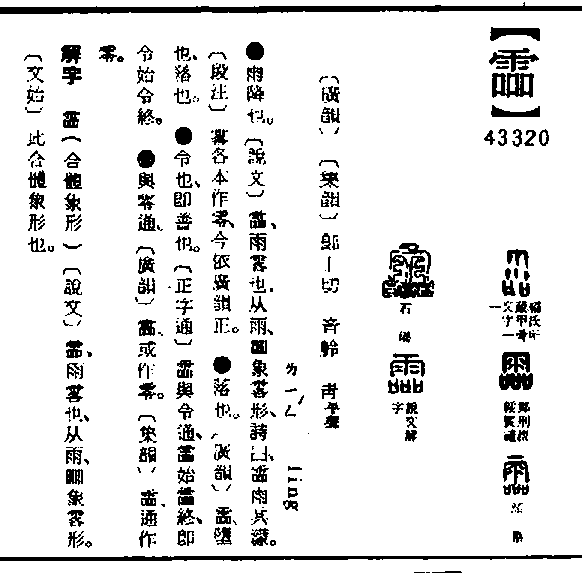 【霝】
43320
〔廣韻〕〔集韻〕郎丁切 音齡 青平聲
ㄌㄧㄥˊ ling
●雨降也。〔說文〕霝、雨零也、从雨、𠱠象零形、詩曰、霝雨其濛。
〔段注〕霝各本作零、今依廣韻正。●落也。〔廣韻〕霝、墮
也、落也。●令也、即善也。〔正字通〕霝與令通、霝始霝終、即
令始令終。●與零通、〔廣韻〕霝、或作零。〔集韻〕霝、通作
零。
解字 霝(合體象形)〔說文〕霝、雨零也、从雨、𠱠象零形。
〔文始〕此合體象形也。
石 碣
說文解
字